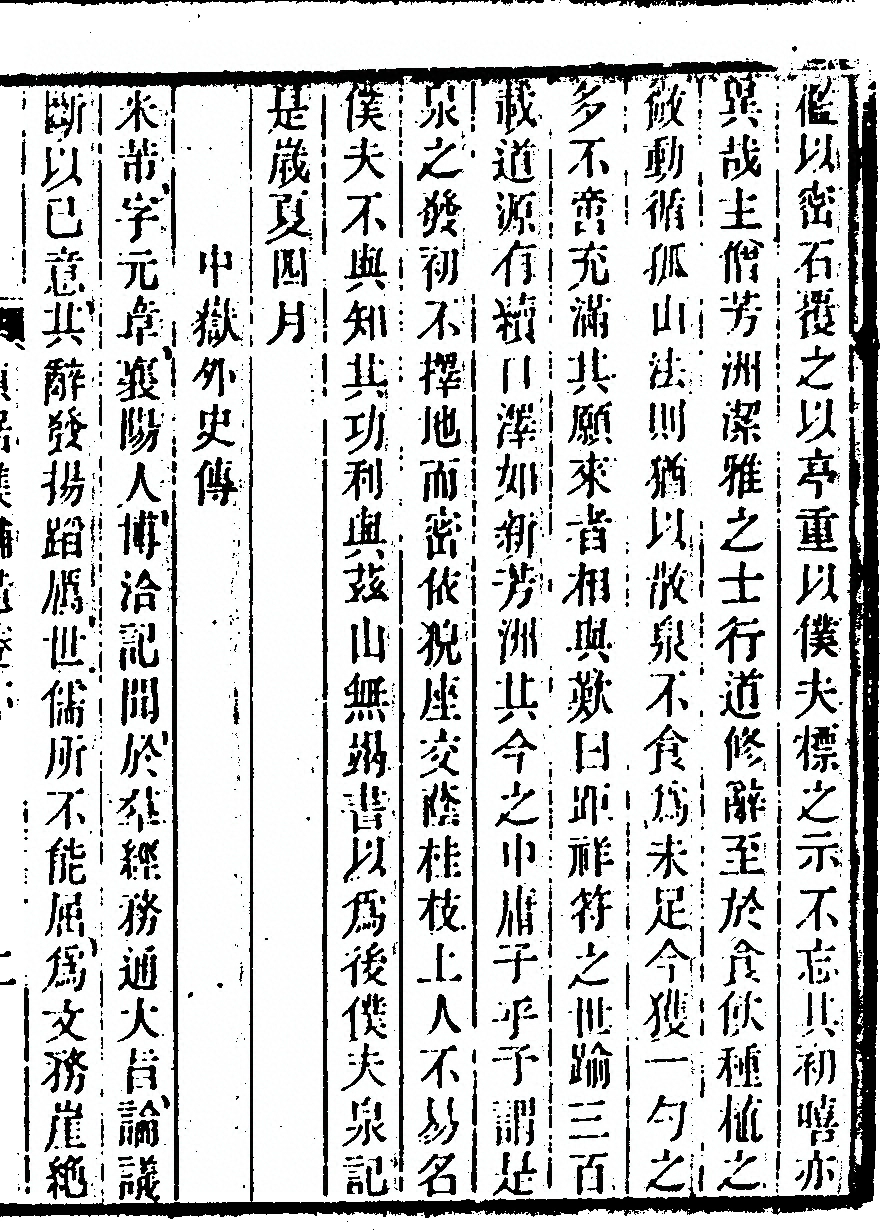 檻以密石覆之以亭重以僕夫標之示不忘其初嘻亦
異哉主僧芳洲潔雅之士行道修辭至於食飲種植之
微動循孤山法則猶以散泉不食為未足今獲一勺之
多不啻充滿其願來者相與歎曰距祥符之世踰三百
載道源有續口澤如新芳洲其今之中庸子乎予謂是
泉之發初不擇地而密依猊座交蔭桂枝上人不易名
僕夫不與知其功利與茲山無竭書以為後僕夫泉記
是歲夏四月
中嶽外史傳
米芾字元章襄陽人博洽記聞於羣經務通大旨論議
斷以己意其辭發揚蹈厲世儒所不能屈為文務崖絶